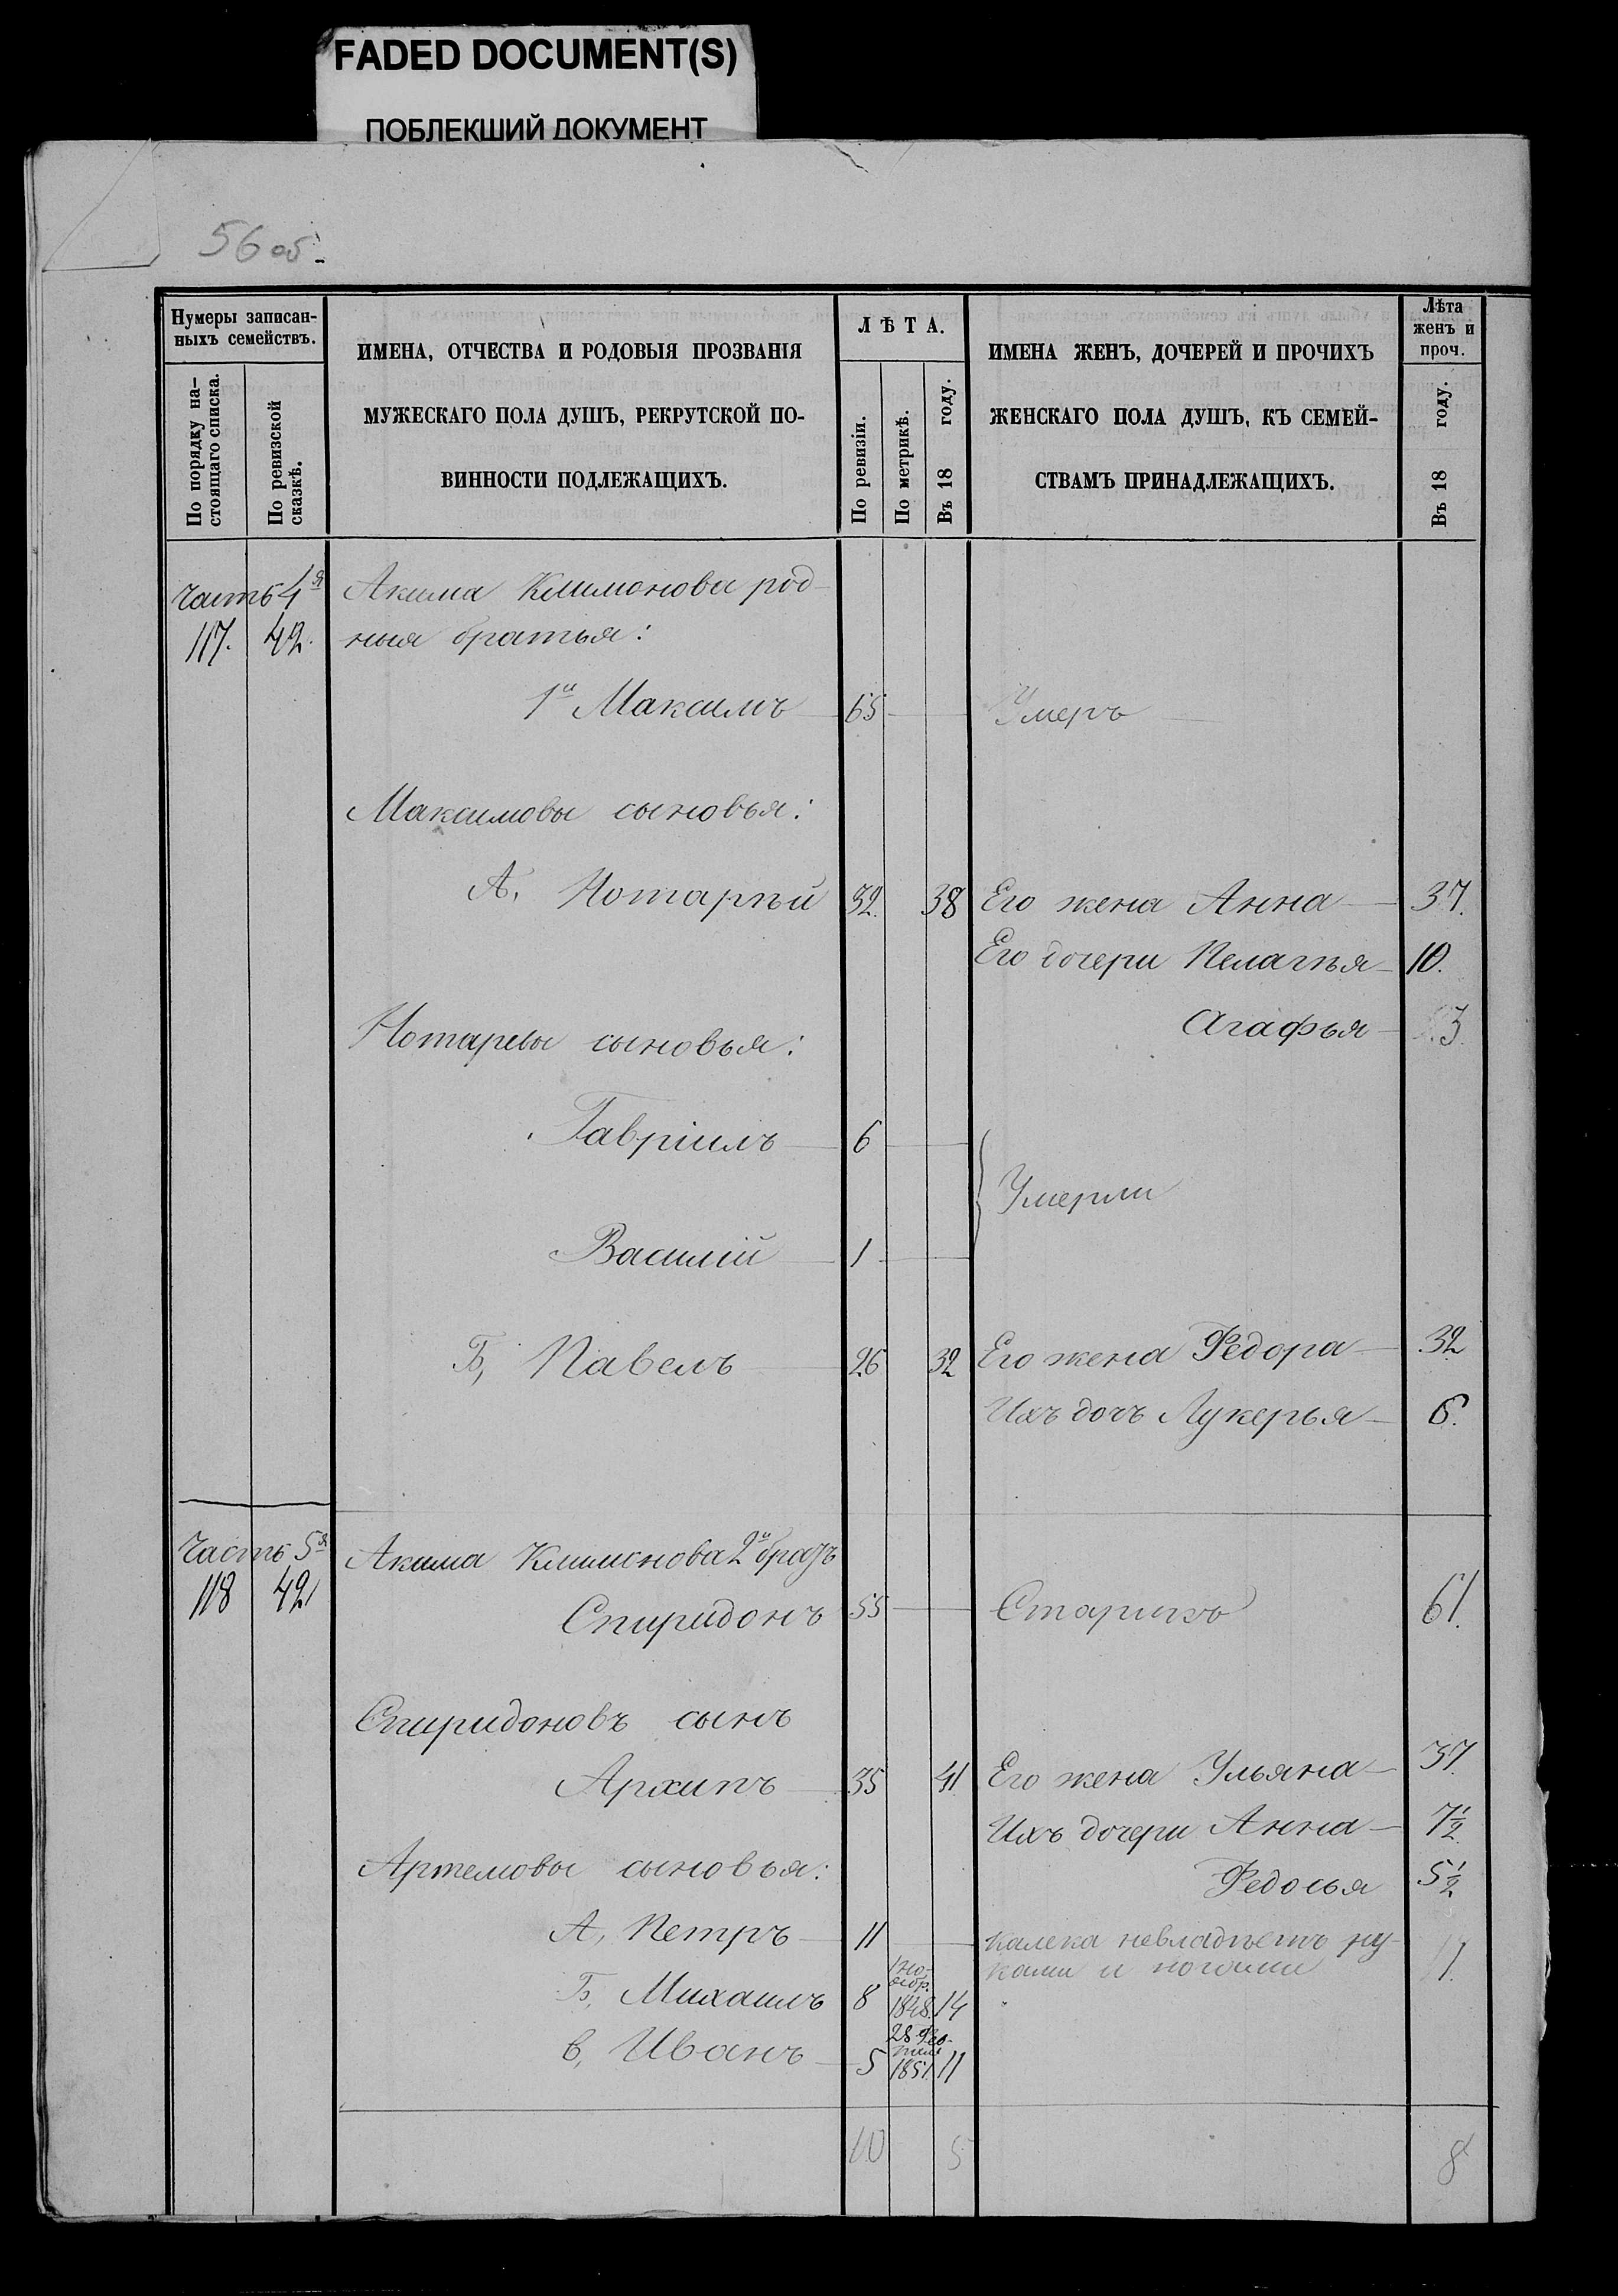 FADED DOCUMENT(S)
ПОБЛЕКШИЙ ДОКУМЕНТ
56 об.
Нумеры записан-
ныхъ семействъ.
По порядку на-
стоящаго списка.
По ревизской
сказкѣ.
ИМЕНА, ОТЧЕСТВА И РОДОВЫЯ ПРОЗВАНІЯ
МУЖЕСКАГО ПОЛА ДУШЪ, РЕКРУТСКОЙ ПО-
ВИННОСТИ ПОДЛЕЖАЩИХЪ.
ЛѢТА.
По ревизіи.
По метрикѣ.
Въ 18 году.
ИМЕНА ЖЕНЪ, ДОЧЕРЕЙ И ПРОЧИХЪ
ЖЕНСКАГО ПОЛА ДУШЪ, КЪ СЕМЕЙ-
СТВАМЪ ПРИНАДЛЕЖАЩИХЪ.
Лѣта
женъ и
проч.
Въ 18 году.
Часть 4я Акима Климонова род-
117. 42. ныя братья:
1й Максимъ 65 Умеръ
Максимовы сыновья:
А, Нотарѣй 32. 38 Его жена Анна 37.
Его дочери Пелагѣя 10.
Агафья 3.
Нотаревы сыновья:
Гавріилъ 6
Умерли
Василій 1
Б, Павелъ 26 32 Его жена Федора 32
Ихъ дочь Лукерья 6.
Часть 5я Акима Климонова 2й братъ
118 42
Спиридонъ 55 Старикъ 61.
Спиридоновъ сынъ
Архипъ 35 41 Его жена Ульяна 37.
Ихъ дочери Анна 7 1/2
Артемовы сыновья:
Федосья 5 1/2
А, Петръ 11 калека невладѣетъ ру-
ками и ногами
Б, Михаилъ 8 1 но-
ябр.
1848. 14
в, Иванъ 5 28
1851 11
10 5 8